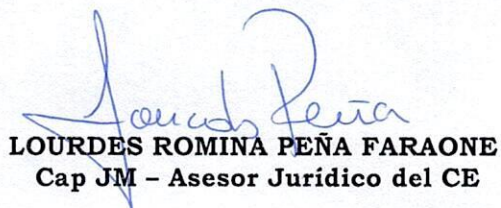 Lourdes Peña
LOURDES ROMINA PEÑA FARAONE
Cap JM – Asesor Jurídico del CE